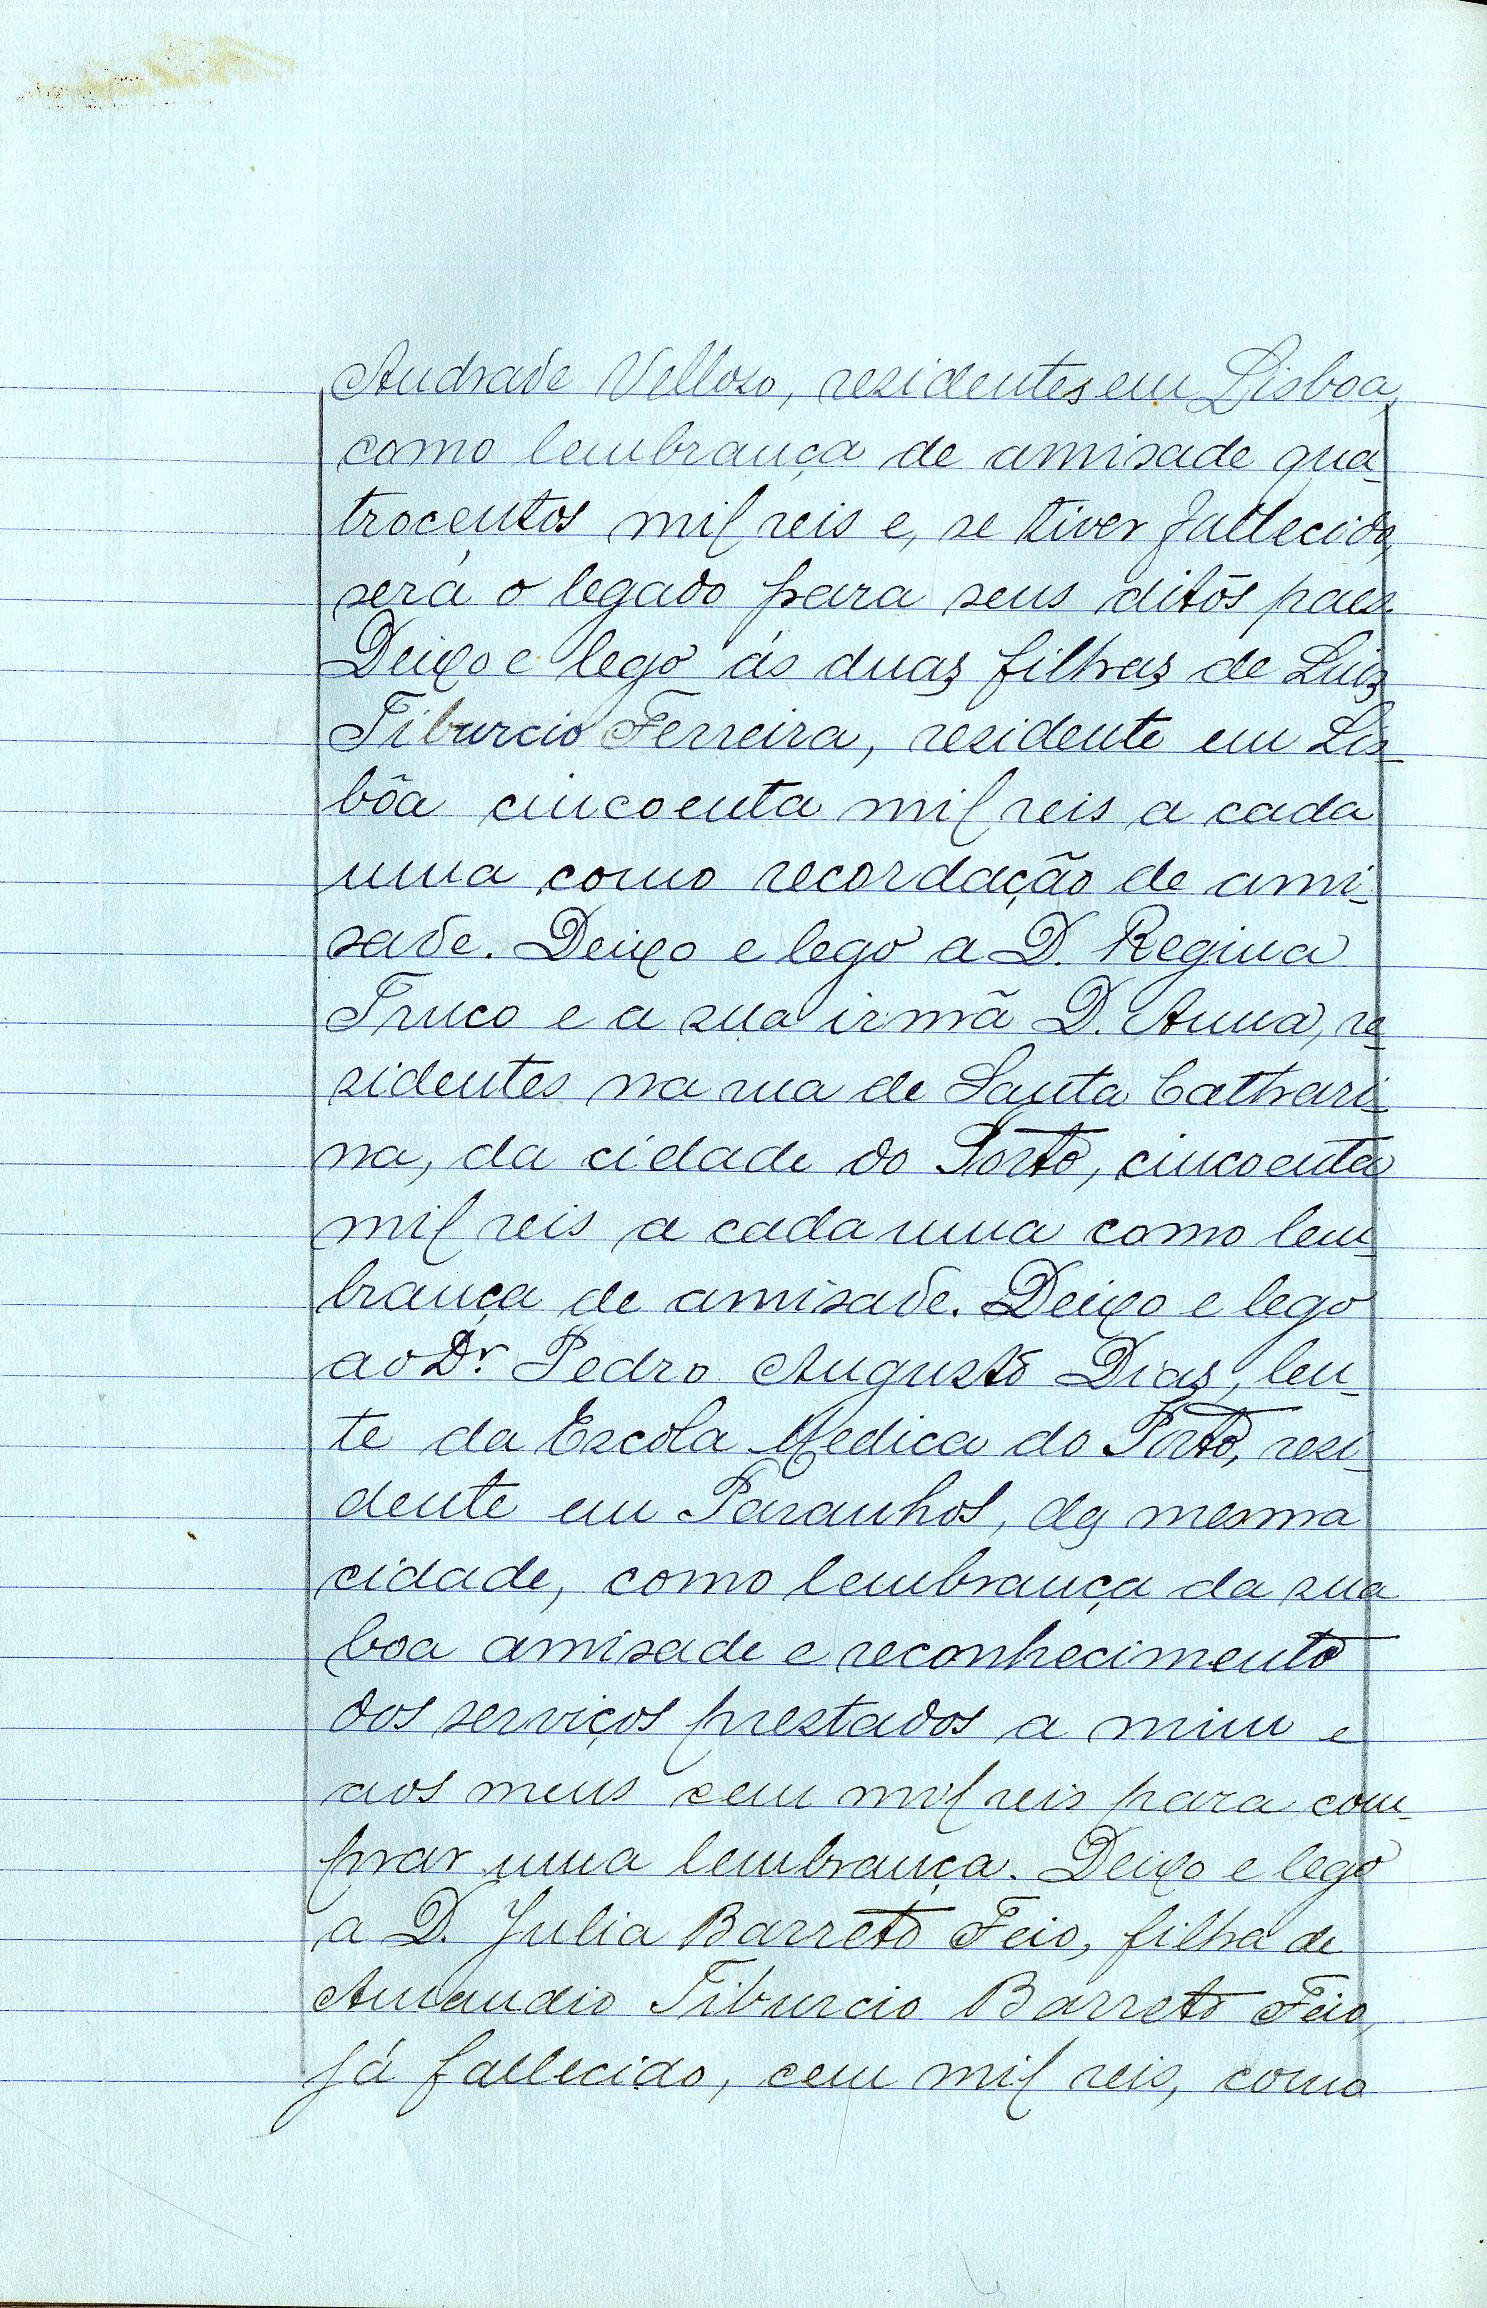 Andrade Velloso, residentes em Lisboa,
como lembrança de amisade qua-
trocentos mil reis e, se tiver fallecido,
será o legado para seus ditos paes.
Deixo e lego ás duas filhas de Luiz
Tiburcio Ferreira, residente em Lis-
bôa cincoenta mil reis a cada
uma como recordação de ami-
sade. Deixo e lego a D. Regina
Truco e a sua irmã D. Anna, re-
sidentes na rua de Santa Cathari-
na, da cidade do Porto, cincoenta
mil reis a cada uma como lem-
brança de amisade. Deixo e lego
ao Dr. Pedro Augusto Dias, len-
te da Escola Medica do Porto, resi-
dente em Paranhos, da mesma
cidade, como lembrança da sua
boa amisade e reconhecimento
dos serviços prestados a mim e
aos meus cem mil reis para com-
prar uma lembrança. Deixo e lego
a D. Julia Barreto Feio, filha de
Amandio Tiburcio Barreto Feio,
já fallecido, cem mil reis, como